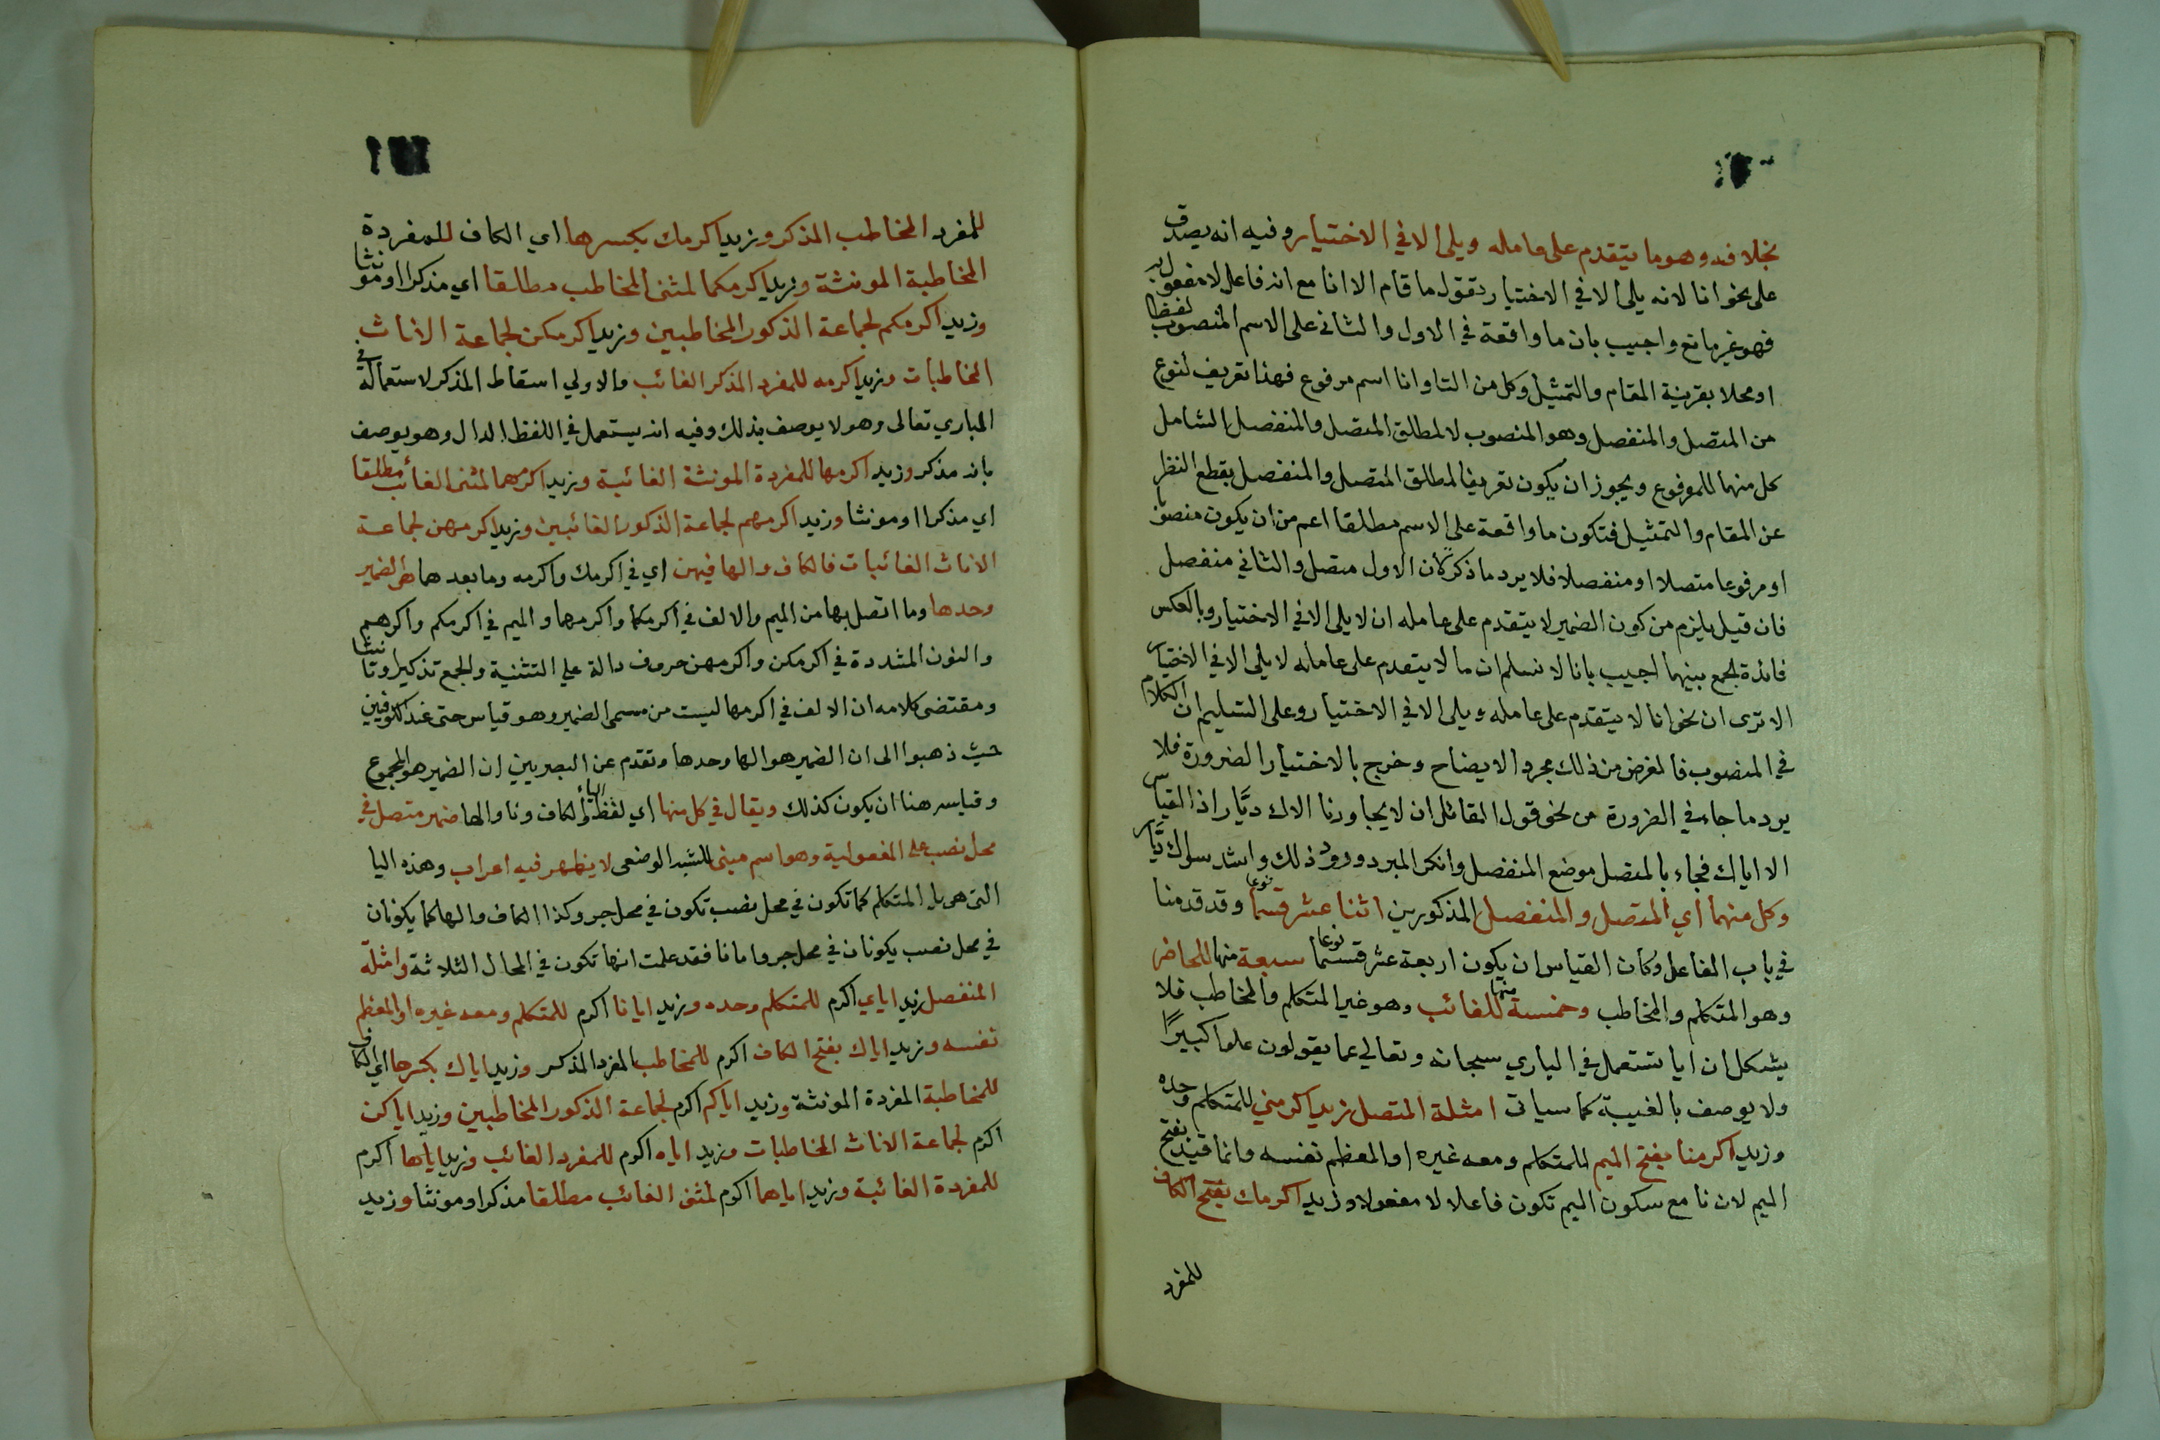 بخلافه وهو ما يتقدم على عامله ويلي الا في الاختيار وفيه انه يصدق
على نحو انا لانه يلي الا في الاختيار تقول ما قام الا انا مع انه فاعل لا مفعول به
فهو غير مانع واجيب بان ما واقعة في الاول والثاني على الاسم المنصوب لفظا
او محلا بقرينة المقام والتمثيل وكل من التا وانا اسم مرفوع فهذا تعريف لنوع
من المتصل والمنفصل وهو المنصوب لا لمطلق المتصل والمنفصل الشامل
كل منهما للمرفوع ويجوز ان يكون تعريفا لمطلق المتصل والمنفصل بقطع النظر
عن المقام والتمثيل فتكون ما واقعة على الاسم مطلقا اعم من ان يكون منصوبا
او مرفوعا متصلا او منفصلا فلا يرد ما ذكر لان الاول متصل والثاني منفصل
فان قيل يلزم من كون الضمير لا يتقدم على عامله ان لا يلي الا في الاختيار وبالعكس
فائدة الجمع بينهما اجيب بانا لا نسلم ان ما لا يتقدم على عامله لا يلي الا في الاختيار
الا ترى ان نحو انا لا يتقدم على عامله ويلي الا في الاختيار وعلى التسليم ان الكلام
في المنصوب فالغرض من ذلك مجرد الايضاح وخرج بالاختيار الضرورة فلا
يرد ما جاء في الضرورة من نحو قول القائل ان لا يجاورنا الاك ديَّار اذ القياس
الا اياك فجاء بالمتصل موضع المنفصل وانكر المبرد ورود ذلك وانشد سواك ديَّار
وكل منهما اي المتصل والمنفصل المذكورين اثنا عشر قسما نوعا وقد قدمنا
في باب الفاعل وكان القياس ان يكون اربعة عشر قسما نوعا سبعة منها للحاضر
وهو المتكلم والمخاطب وخمسة منها للغائب وهو غير المتكلم والمخاطب فلا
يشكل ان ايا تستعمل في الباري سبحانه وتعالى عما يقولون علوا كبيرًا
ولا يوصف بالغيبة كما سياتي امثلة المتصل زيد اكرمني للمتكلم وحده
وزيد اكرمنا بفتح الميم للمتكلم ومعه غيره او المعظم نفسه وانما قيد بفتح
الميم لان نا مع سكون الميم تكون فاعلا لا مفعولا وزيد اكرمك بفتح الكاف
للمفرد
للمفرد المخاطب المذكر وزيد اكرمك بكسرها اي الكاف للمفردة
المخاطبة المونثة وزيد اكرمكما لمثنى المخاطب مطلقا اي مذكرا او مونثا
وزيد اكرمكم لجماعة الذكور المخاطبين وزيد اكرمكن لجماعة الاناث
المخاطبات وزيد اكرمه للمفرد المذكر الغائب والاولي اسقاط المذكر لاستعماله في
الباري تعالى وهو لا يوصف بذلك وفيه انه يستعمل في اللفظ الدال وهو يوصف
بانه مذكر وزيد اكرمها للمفردة المونثة الغائبة وزيد اكرمهما لمثنى الغائب مطلقا
اي مذكرا او مونثا وزيد اكرمهم لجماعة الذكور الغائبين وزيد اكرمهن لجماعة
الاناث الغائبات فالكاف والها فيهن اي في اكرمك واكرمه وما بعدهما هي الضمير
وحدها وما اتصل بها من الميم والالف في اكرمكما واكرمهما والميم في اكرمكم واكرمهم
والنون المشددة في اكرمكن واكرمهن حروف دالة على التثنية والجمع تذكيرا وتانيثا
ومقتضى كلامه ان الالف في اكرمها ليست من مسمى الضمير وهو قياس حتى عند الكوفيين
حيث ذهبوا الى ان الضمير هو الها وحدها وتقدم عن البصريين ان الضمير هو المجموع
وقياسه هنا ان يكون كذلك ويقال في كل منها اي لفظ الياء والكاف ونا والها ضمير متصل في
محل نصب على المفعولية وهو اسم مبني للشبه الوضعى لا يظهر فيه اعراب وهذه اليا
التى هي يا المتكلم كما تكون في محل نصب تكون في محل جر وكذا الكاف والها كما يكونان
في محل نصب يكونان في محل جر واما نا فقد علمت انها تكون في المحال الثلاثة وامثلة
المنفصل زيد اياي اكرم للمتكلم وحده وزيد ايانا اكرم للمتكلم ومعه غيره او المعظم
نفسه وزيد اياك بفتح الكاف اكرم للمخاطب المفرد المذكر وزيد اياك بكسرها اي الكاف
للمخاطبة المفردة المونثة وزيد اياكم اكرم لجماعة الذكور المخاطبين وزيد اياكن
اكرم لجماعة الاناث المخاطبات وزيد اياه اكرم للمفرد الغائب وزيد اياها اكرم
للمفردة الغائبة وزيد اياهما اكرم لمثنى الغائب مطلقا مذكرا او مونثا وزيد